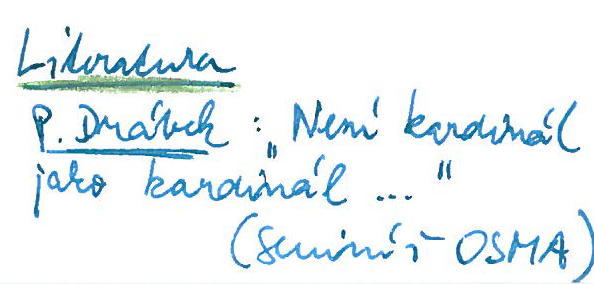 Literatura
P. Drábek : „Není kardinál
jako kardinál ... "
(Seminář OSMA)